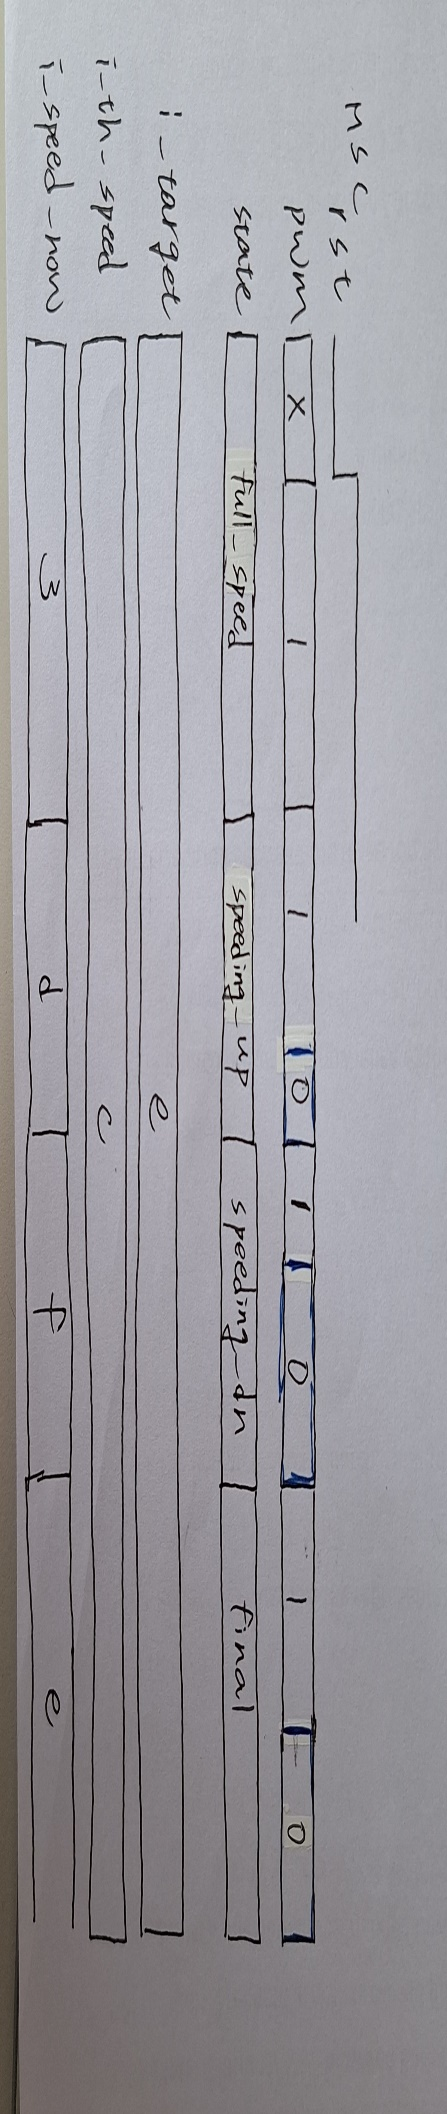 MSC
rst
pwm X 1 1 0 1 0 1 0
state full_speed speeding_up speeding_dn final
i_target e
i_th_speed c
i_speed_now 3 d f e